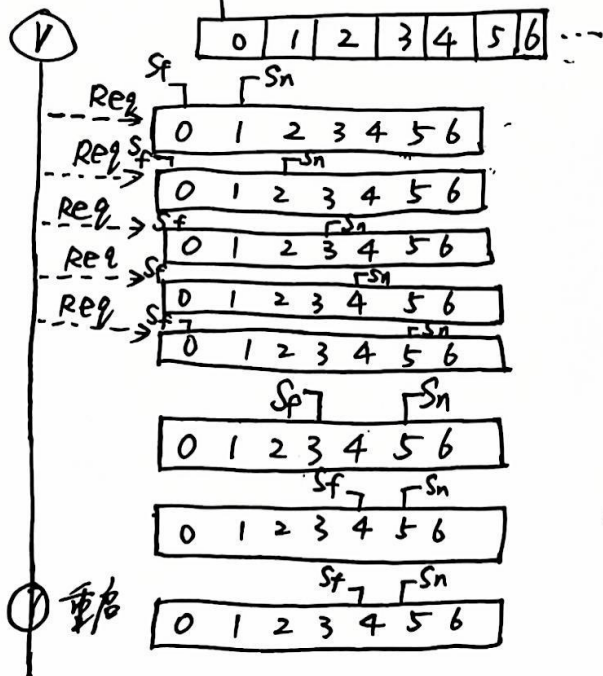 V
0 1 2 3 4 5 6 ....
Sf Sn
Req
0 1 2 3 4 5 6
Req Sf Sn
0 1 2 3 4 5 6
Req Sf Sn
0 1 2 3 4 5 6
Req Sf Sn
0 1 2 3 4 5 6
Req Sf Sn
0 1 2 3 4 5 6
Sf Sn
0 1 2 3 4 5 6
Sf Sn
0 1 2 3 4 5 6
Sf Sn
重启 0 1 2 3 4 5 6